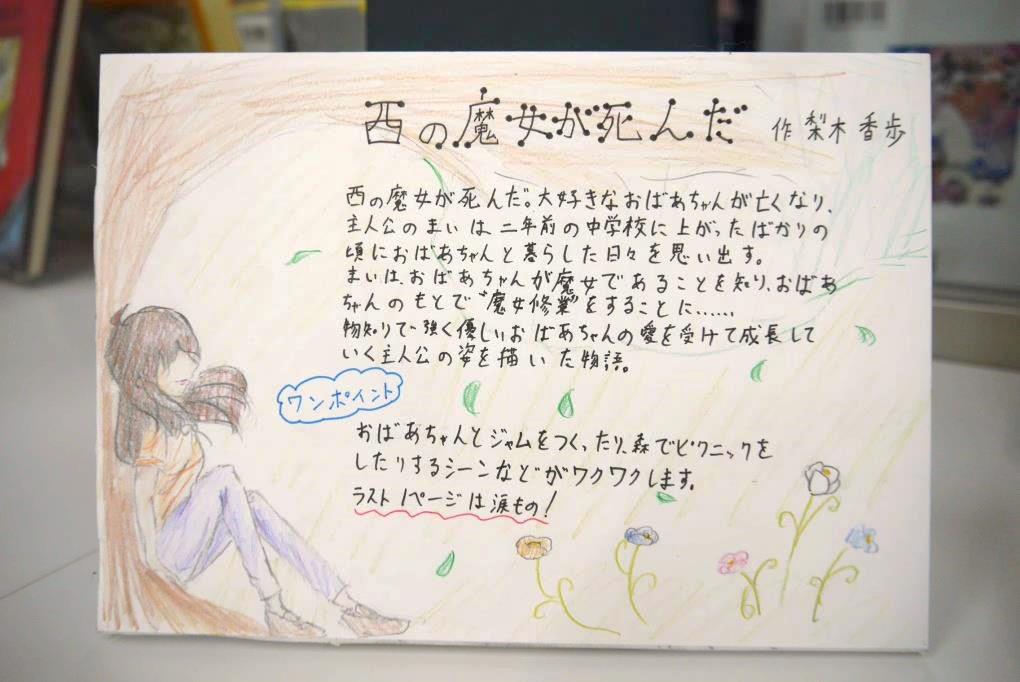 西の魔女が死んだ 作 梨木香歩
西の魔女が死んだ。大好きなおばあちゃんが亡くなり、
主人公のまいは二年前の中学校に上がったばかりの
頃におばあちゃんと暮らした日々を思い出す。
まいは、おばあちゃんが魔女であることを知り、おばあ
ちゃんのもとで“魔女修業”をすることに……
物知りで強く優しいおばあちゃんの愛を受けて成長して
いく主人公の姿を描いた物語。
ワンポイント
おばあちゃんとジャムをつくったり、森でピクニックを
したりするシーンなどがワクワクします。
ラスト1ページは涙もの!